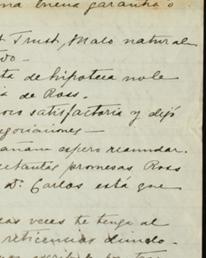 una buena garantía o
t Trust, Malo natural
do -
ta de hipoteca no le
ia de Ross.
oco satisfactoria y dejó
egociaciones -
añana espero reanudar.
citantes promesas Ross
Dn Carlos está que
cas veces te tengo al
reticencias diciendo-